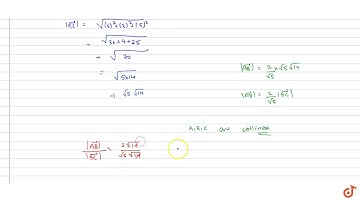 |BC| = √(6)²+(3)²+(5)²
= √36+9+25
= √70
= √5x14
⇒ √5 √14
|AB| = 2/√5 x √5 √14
|AB| = 2/√5 |BC|
A,B,C are collinear
|AB|/|BC| = 2√14/√5 √14